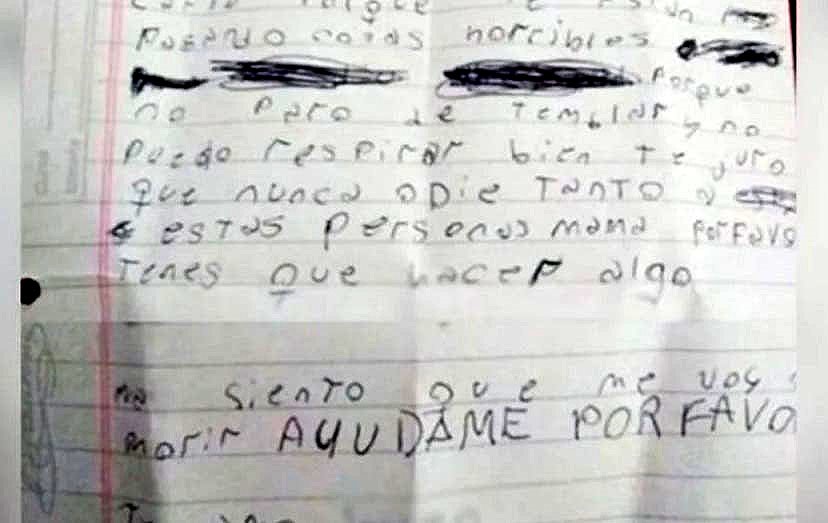 Pasando cosas horribles
Porque
no paro de temblar y no
Puedo respirar bien Te juro
que nunca odie TanTO a
estas personas mama Porfavo
Tenes que hacer algo
siento que me voy
morir AYUDAME POR FAVO